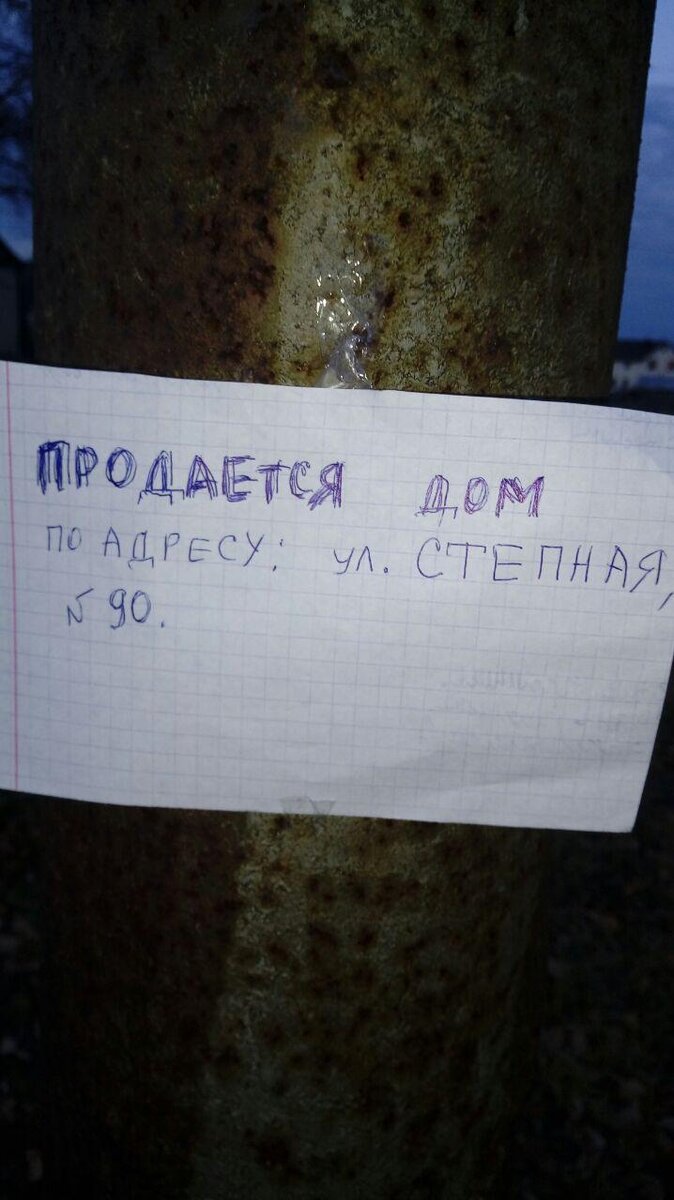 ПРОДАЕТСЯ ДОМ
ПО АДРЕСУ: ул. СТЕПНАЯ,
№ 90.